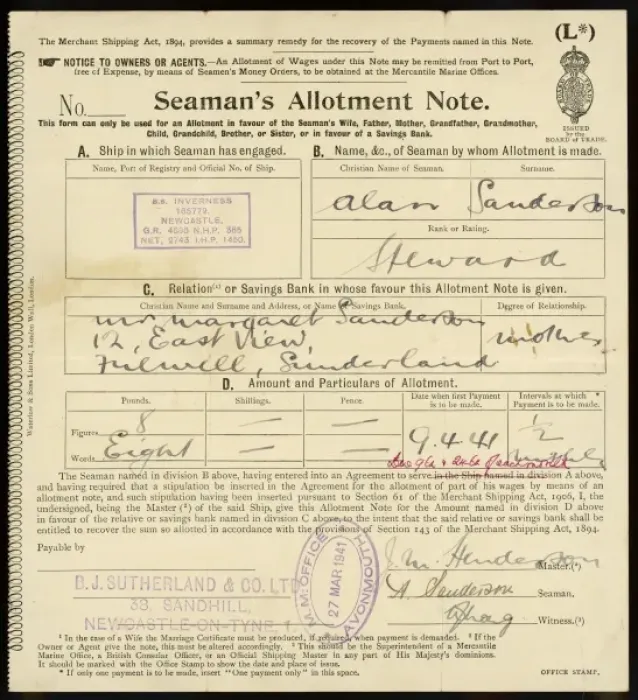 (L*)
The Merchant Shipping Act, 1894, provides a summary remedy for the recovery of the Payments named in this Note.
☛ NOTICE TO OWNERS OR AGENTS.—An Allotment of Wages under this Note may be remitted from Port to Port,
free of Expense, by means of Seamen's Money Orders, to be obtained at the Mercantile Marine Offices.
No.
Seaman's Allotment Note.
ISSUED
by the
BOARD OF TRADE.
This form can only be used for an Allotment in favour of the Seaman's Wife, Father, Mother, Grandfather, Grandmother,
Child, Grandchild, Brother, or Sister, or in favour of a Savings Bank.
A. Ship in which Seaman has engaged.
Name, Port of Registry and Official No. of Ship.
S.S. INVERNESS
NEWCASTLE.
B. Name, &c., of Seaman by whom Allotment is made.
Christian Name of Seaman. Surname.
Alan Sanderson
Rank or Rating.
Steward
C. Relation(¹) or Savings Bank in whose favour this Allotment Note is given.
Christian Name and Surname and Address, or Name of Savings Bank. Degree of Relationship.
Margaret Sanderson mother
12, East View,
Fulwell, Sunderland
D. Amount and Particulars of Allotment.
Pounds. Shillings. Pence. Date when first Payment is to be made. Intervals at which * Payment is to be made.
Figures 8 — — 9.4.41 1/2
Words Eight — —
The Seaman named in division B above, having entered into an Agreement to serve in the Ship named in division A above,
and having required that a stipulation be inserted in the Agreement for the allotment of part of his wages by means of an
allotment note, and such stipulation having been inserted pursuant to Section 61 of the Merchant Shipping Act, 1906, I, the
undersigned, being the Master (²) of the said Ship, give this Allotment Note for the Amount named in division D above
in favour of the relative or savings bank named in division C above, to the intent that the said relative or savings bank shall be
entitled to recover the sum so allotted in accordance with the provisions of Section 143 of the Merchant Shipping Act, 1894.
Payable by
B. J. SUTHERLAND & CO. LTD
38, SANDHILL,
NEWCASTLE-ON-TYNE, 1.
M.M. OFFICE
27 MAR 1941
AVONMOUTH
J. M. Henderson Master.(²)
A. Sanderson Seaman.
Witness.(³)
¹ In the case of a Wife the Marriage Certificate must be produced, if required, when payment is demanded. ² If the
Owner or Agent give the note, this must be altered accordingly. ³ This should be the Superintendent of a Mercantile
Marine Office, a British Consular Officer, or an Official Shipping Master in any part of His Majesty's dominions.
It should be marked with the Office Stamp to show the date and place of issue.
* If only one payment is to be made, insert "One payment only" in this space.
OFFICE STAMP.
Waterlow & Sons Limited, London Wall, London.